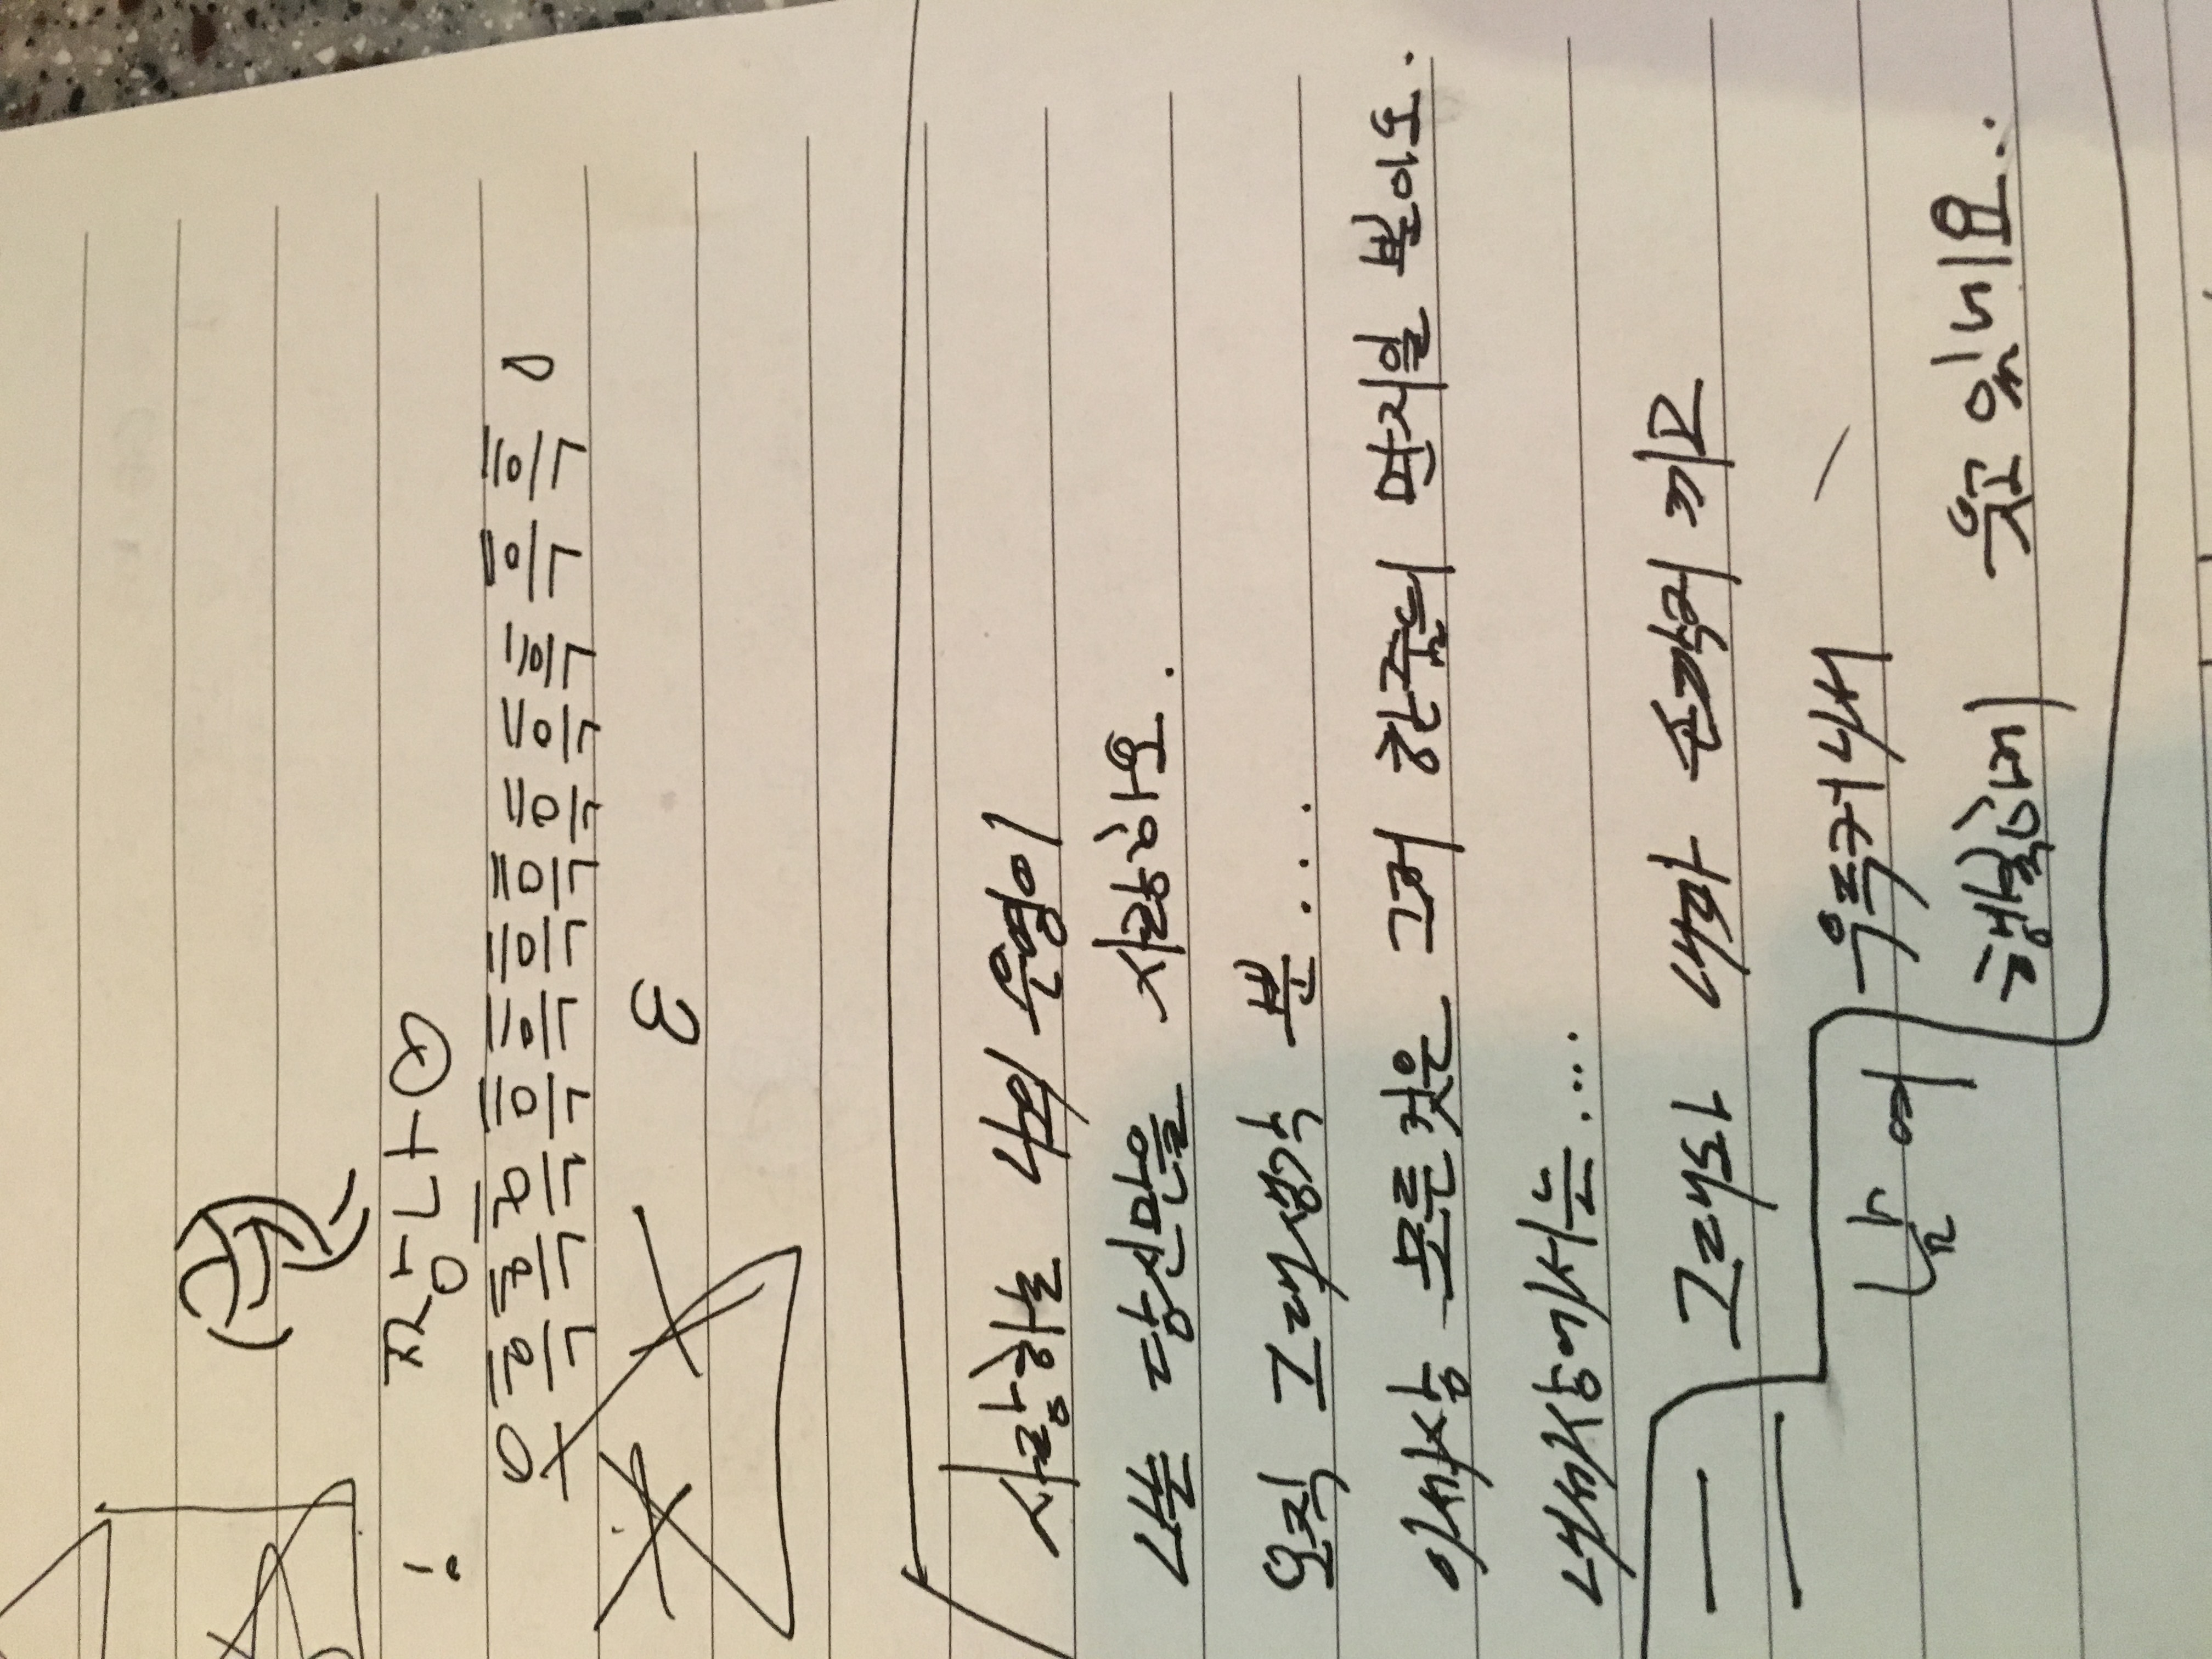 짱나
으흑흑흑흑흑흑흑흑흑흑흑흑
사랑하는 나의 운영이
나는 당신만을 사랑하오.
오직 그대생각 뿐...
이세상 모든것은 그저 한줌의 먼지일 뿐이오.
내세상에서는....
그대와 내가 손깍지 끼고
우뚝커니서
남 여
행복하게 웃고 있네요..